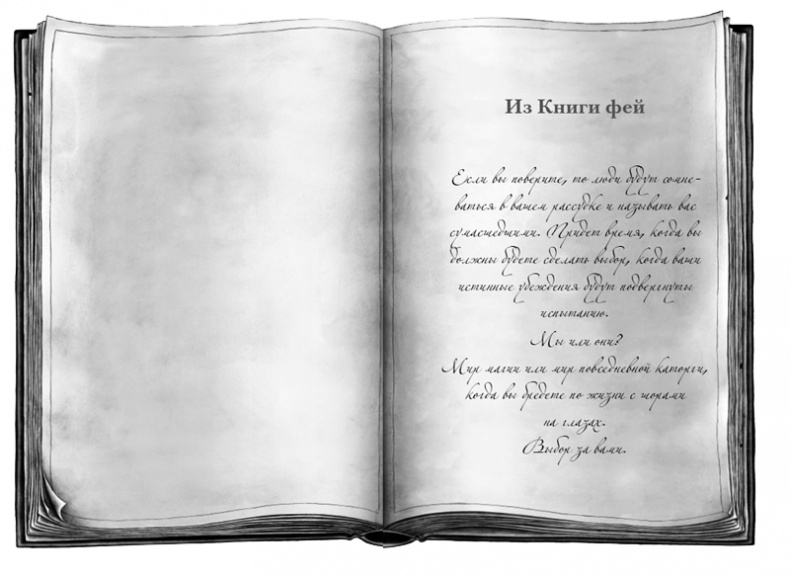 Из Книги фей
Если вы поверите, то люди будут сомне-
ваться в вашем рассудке и называть вас
сумасшедшими. Придет время, когда вы
должны будете сделать выбор, когда ваши
истинные убеждения будут подвергнуты
испытанию.
Мы или они?
Мир магии или мир повседневной каторги,
когда вы бредете по жизни с шорами
на глазах.
Выбор за вами.